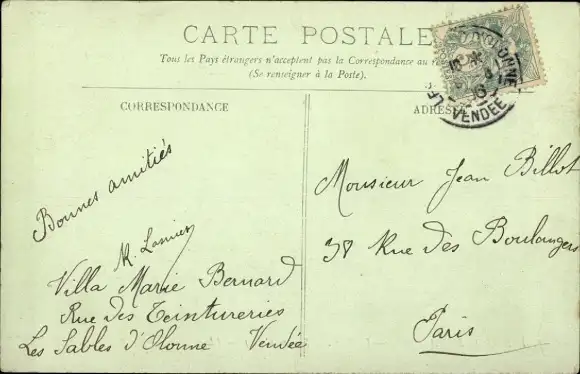 CARTE POSTALE
Tous les Pays étrangers n'acceptent pas la Correspondance au
(Se renseigner à la Poste).
CORRESPONDANCE
ADRESSE
Bonnes amitiés
Villa Marie Bernard
Rue des Teintureries
Les Sables d'Olonne Vendée
Monsieur Jean Billot
38 Rue des Boulangers
Paris
D'OLONNE
VENDÉE